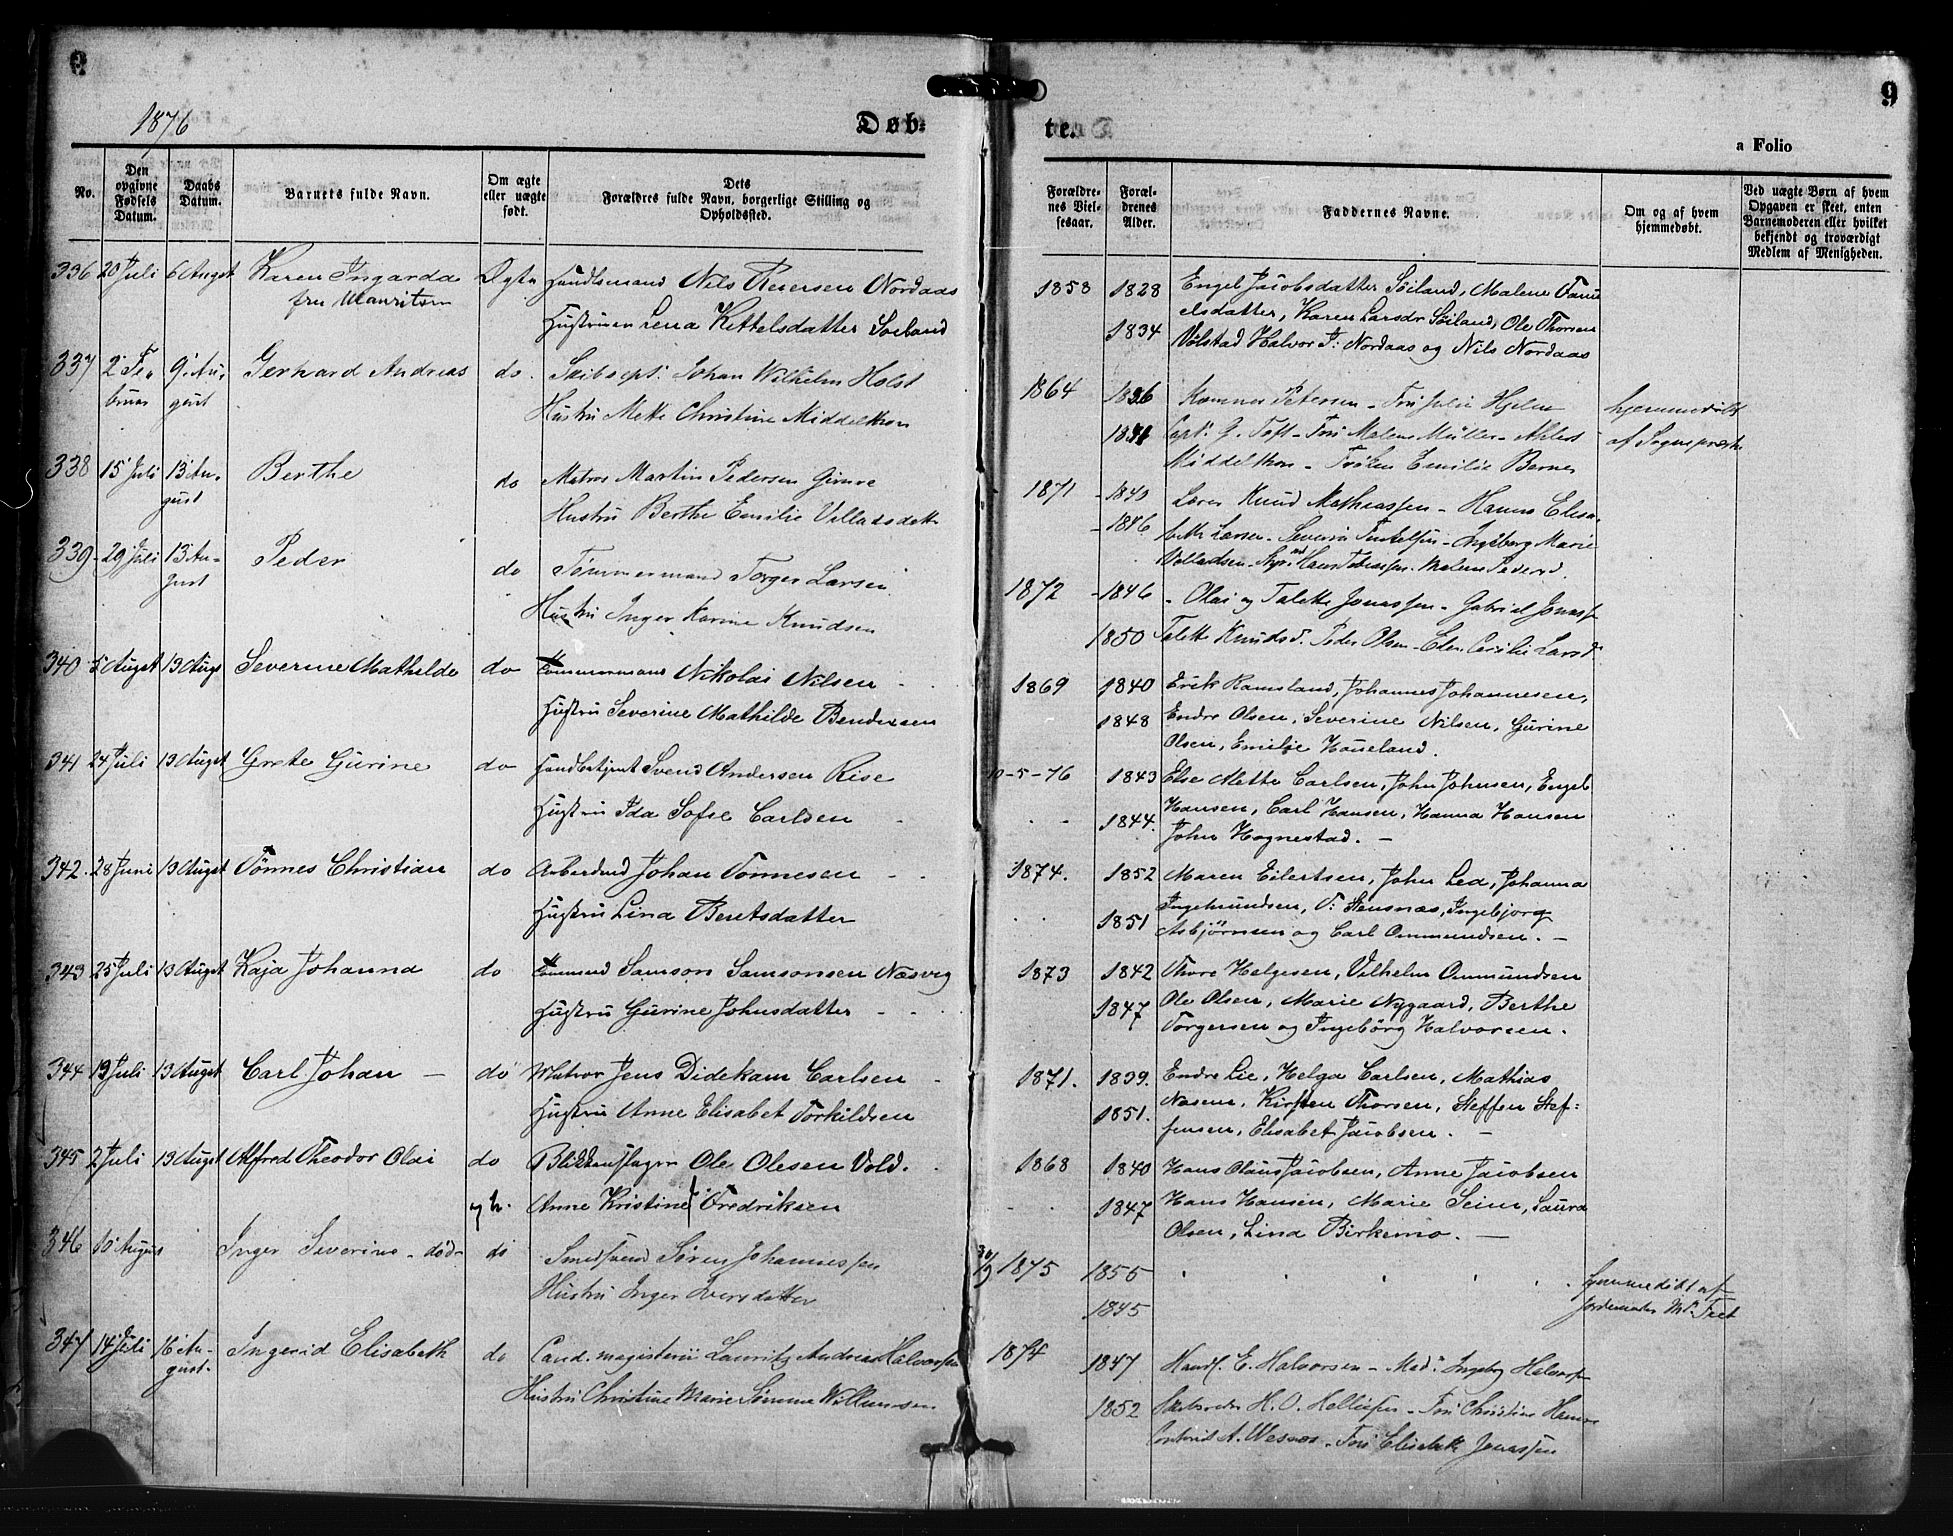 9
1876
Døb-
te.
a Folio
No.
Den opgivne Fødsels Datum.
Daabs Datum.
Barnets fulde Navn.
Om ægte eller uægte født.
Dets Forældres fulde Navn, borgerlige Stilling og Opholdssted.
Forældrenes Vielsesaar.
Forældrenes Alder.
Faddernes Navne.
Om og af hvem hjemmedøbt.
Ved uægte Børn af hvem Opgaven er skeet, enten Barnemoderen eller hvilket bekjendt og troværdigt Medlem af Menigheden.
336 20 Juli 6 August Karen Ingarda Ægte Nils Reiersen Nordaas 1853 1828 Engel Jacobsdatter Søiland, Malene
Lena Kittelsdatter Soiland 1834 elsdatter, Karen Larsdr Søiland, Ole Thorsen
Vølstad Halvor P: Nordaas og Nils Nordaas
337 2 Fe- 9 Au- Gerhard Andreas do. Skibscpt. Johan Wilhelm Holst 1864 1836 Kæmner Petersen - Julie Hjelm hjemmedøbt
bruar gust Hustru Mette Christine Middelthon Capt. G. Toft - Malene Müller - Ahlert af Sognepræst
Middelthon - Frøken Emilie Berner
338 15 Juli 13 Au- Berthe do Matros Martin Pedersen 1871 1840 Lærer Knud Mathiassen - Hanne Elisa-
gust Hustru Berthe Emilie Villadsdatter 1846 beth Larsen - Severin - Ingeborg Marie
Villadsen - Hans Tobiassen - Malene
339 29 Juli 13 Au- Peder do Tømmermand Torger Larsen 1872 1846 Olai og Talette Jonassen - Gabriel
gust Hustru Inger Karine Knudsen 1850 Talette Knudsd. Peder Olsen - Cecilie Larsd.
340 5 August 13 Augs Severine Mathilde do Nikolai Nilsen 1869 1840 Erik Ramsland, Johannes Johannesen,
Hustru Severine Mathilde Bendixsen 1848 Endre Olsen, Severine Nilsen, Gurine
Olsen, Emilie Haueland.
341 24 Juli 13 August Grete Gurine do Svend Andersen Rise 10-5-76 1843 Else Mette Carlsen, John Johnsen, Engel
Hustru Ida Sofie Carlsen 1844. Hansen, Carl Hansen, Hanna Hansen
John Hognestad.
342. 28 Juni 13 August Tønnes Christian do Johan Tønnesen 1874. 1852 Maren Eilertsen, John Lea, Johanna
Hustru Lina Berntsdatter 1851 Ingebjorg
Asbjørnsen og Carl Ommundsen.
343 25 Juli 13 August Kaja Johanna do Samson Samsonsen Næsvig 1873 1842 Thore Helgesen, Vilhelm Ommundsen
Hustru Gurine Johnsdatter 1847 Ole Olsen, Marie Nygaard, Berthe
Torgersen og Ingebörg Halvorsen.
344 19 Juli 13 August Carl Johan do Matros Jens Didekam Carlsen 1871. 1839. Endre Lie, Helga Carlsen, Mathias
Hustru Anne Elisabet Torkildsen 1851. Nasem, Kirsten Thorsen, Steffen Stef-
fensen, Elisabet Jacobsen.
345 2 Juli 13 August Alfred Theodor Olai do Ole Olesen Vold. 1868 1840 Hans Olaus Jacobsen, Anne Jacobsen
Anne Kristine Fredriksen 1847 Hans Hansen, Marie Seim, Laura
Olsen, Lina Birkemo.
346 10 August Inger Severine - død- do Smedsvend Søren Johannessen 30/9 1875 1855 hjemmedøbt af
Hustru Inger Iversdatter 1845 Jordemoder
347 14 Juli 16 Au- Ingerid Elisabeth do Cand. magisterii Lauritz Andreas Halvorsen 1874 1847 E. Halvorsen - Mad. Ingeborg Halvorsen
gust. Hustru Christine Marie Sømme Willumsen 1852 H. O. Helliesen - Christine
A. Wesnes - Elisabeth Jonassen